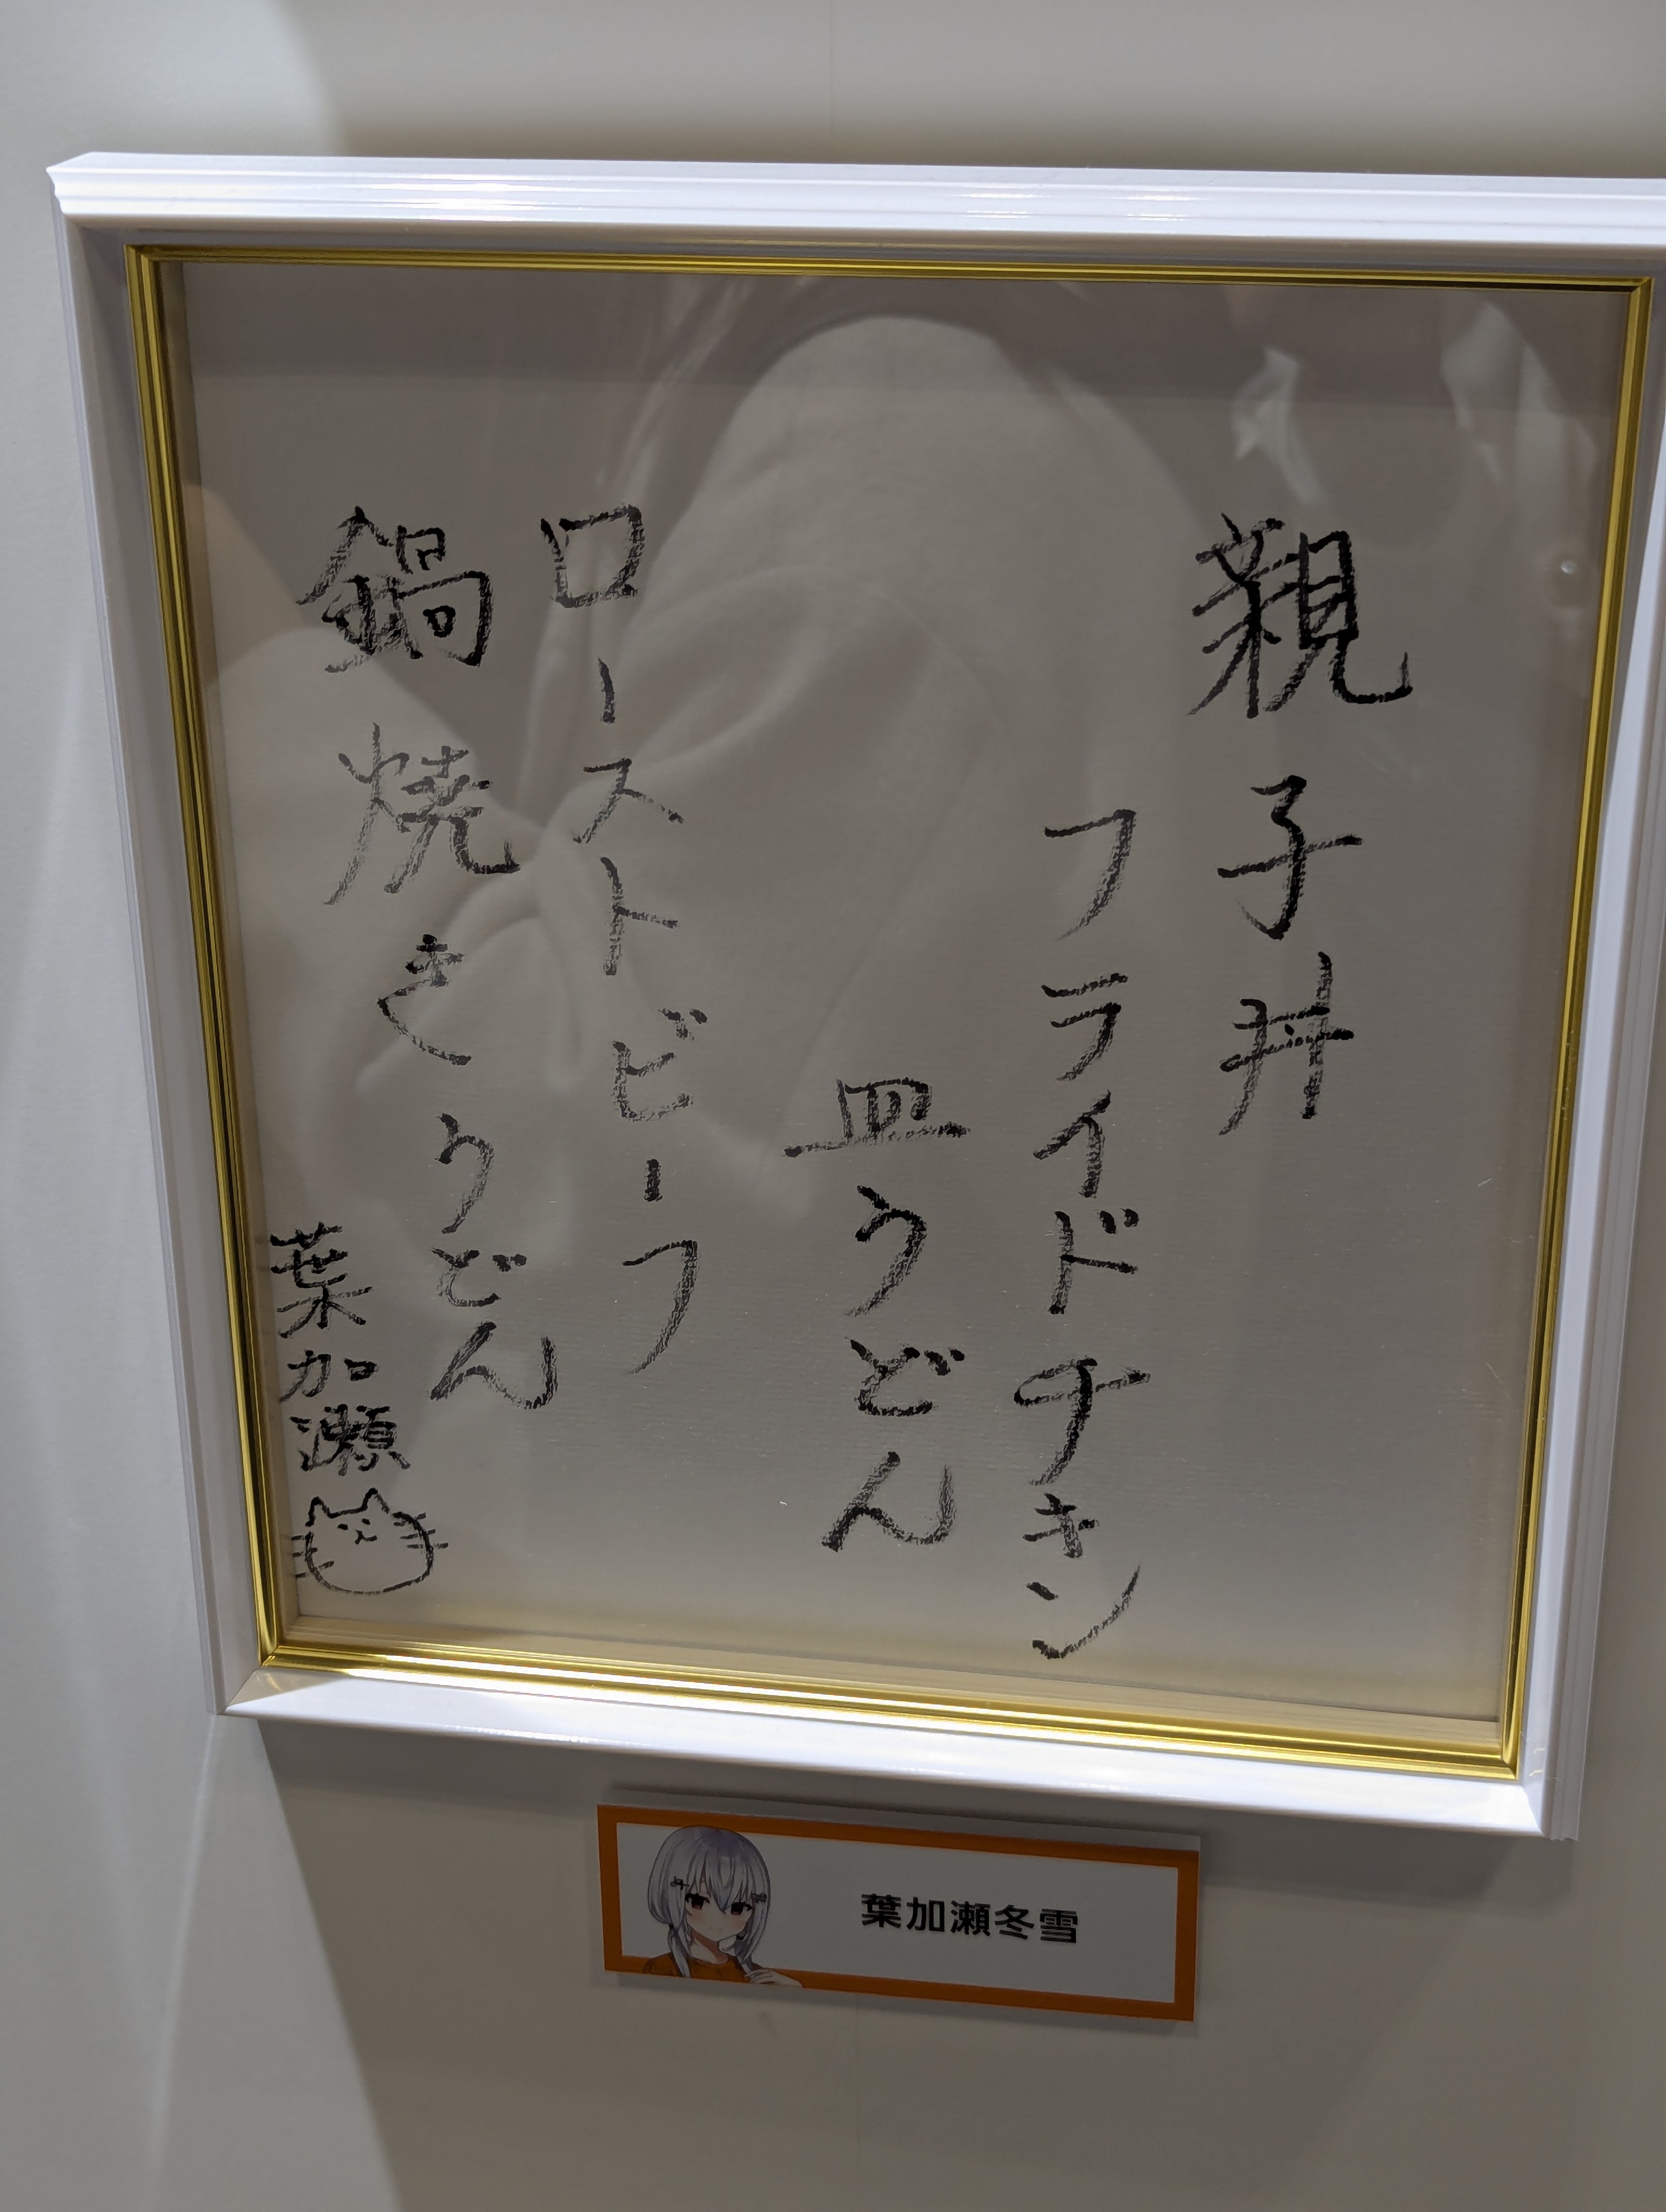 親子丼
フライドチキン
皿うどん
ローストビーフ
鍋焼きうどん
葉加瀬
葉加瀬冬雪